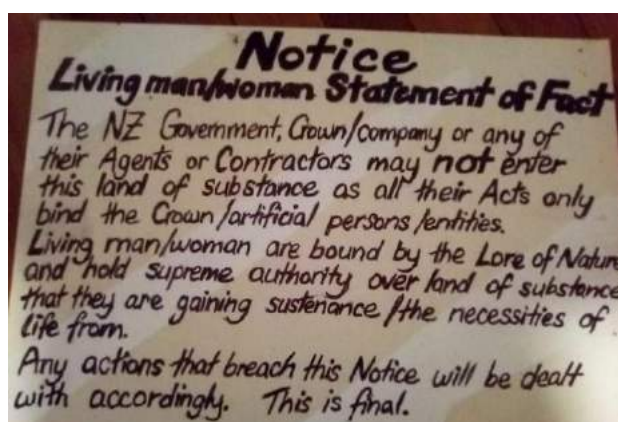 Notice
Living man/woman Statement of Fact
The NZ Government, Crown/company or any of
their Agents or Contractors may not enter
this land of substance as all their Acts only
bind the Crown/artificial persons/entities.
Living man/woman are bound by the Lore of Nature
and hold supreme authority over land of substance
that they are gaining sustenance/the necessities of
life from.
Any actions that breach this Notice will be dealt
with accordingly. This is final.